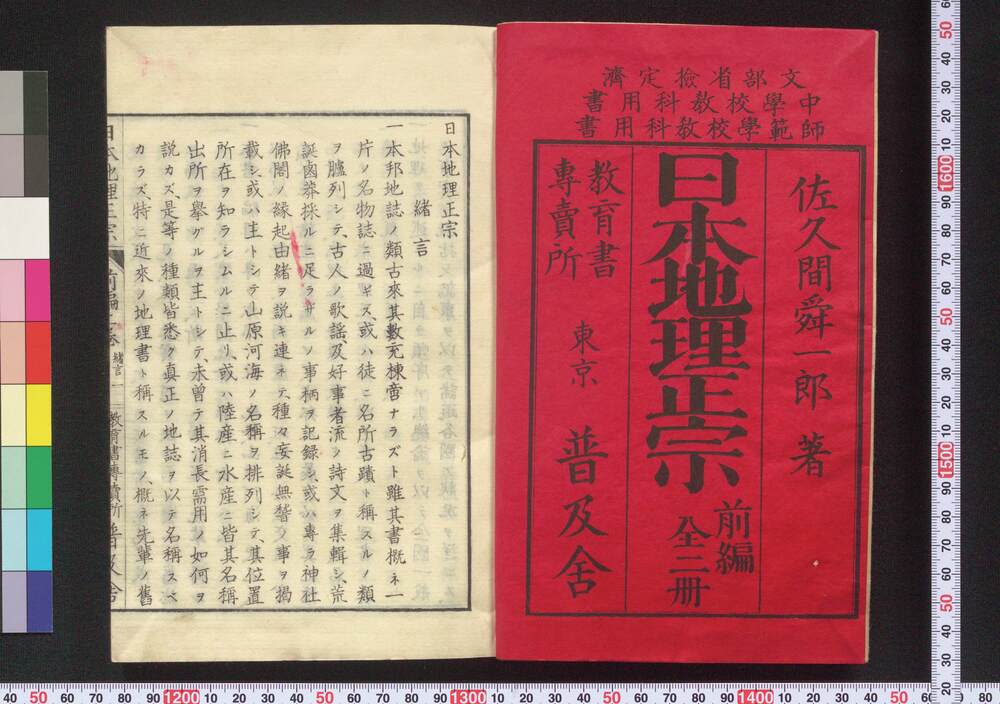 文部省檢定濟
中學校教科用書
師範學校教科用書
佐久間舜一郎 著
日本地理正宗
前編
全二冊
教育書
專賣所
東京 普及舍
日本地理正宗
緒言
一本邦地誌ノ類古來其數充棟啻ナラズト雖其書概ネ一
片ノ名物誌ニ過ギス或ハ徒ニ名所古蹟ト稱スルノ類
ヲ臚列シテ、古人ノ歌謠、及好事者流ノ詩文ヲ集輯シ、荒
誕鹵莽採ルニ足ラザルノ事柄ヲ記録シ、或ハ專ラ神社
佛閣ノ縁起由緒ヲ説キ連ネテ、種々妄誕無稽ノ事ヲ揭
載シ、或ハ主トシテ山原河海ノ名稱ヲ排列シテ、其位置
所在ヲ知ラシムルニ止リ、或ハ陸産ニ水産ニ皆其名稱
出所ヲ擧グルヲ主トシテ、未曾テ其消長需用ノ如何ヲ
説カズ、是等ノ種類皆悉ク真正ノ地誌ヲ以テ名稱スベ
カラズ、特ニ近來ノ地理書ト稱スルモノ、概ネ先輩ノ舊
日本地理正宗 前編 緒言 一 教育書專賣所 普及舍